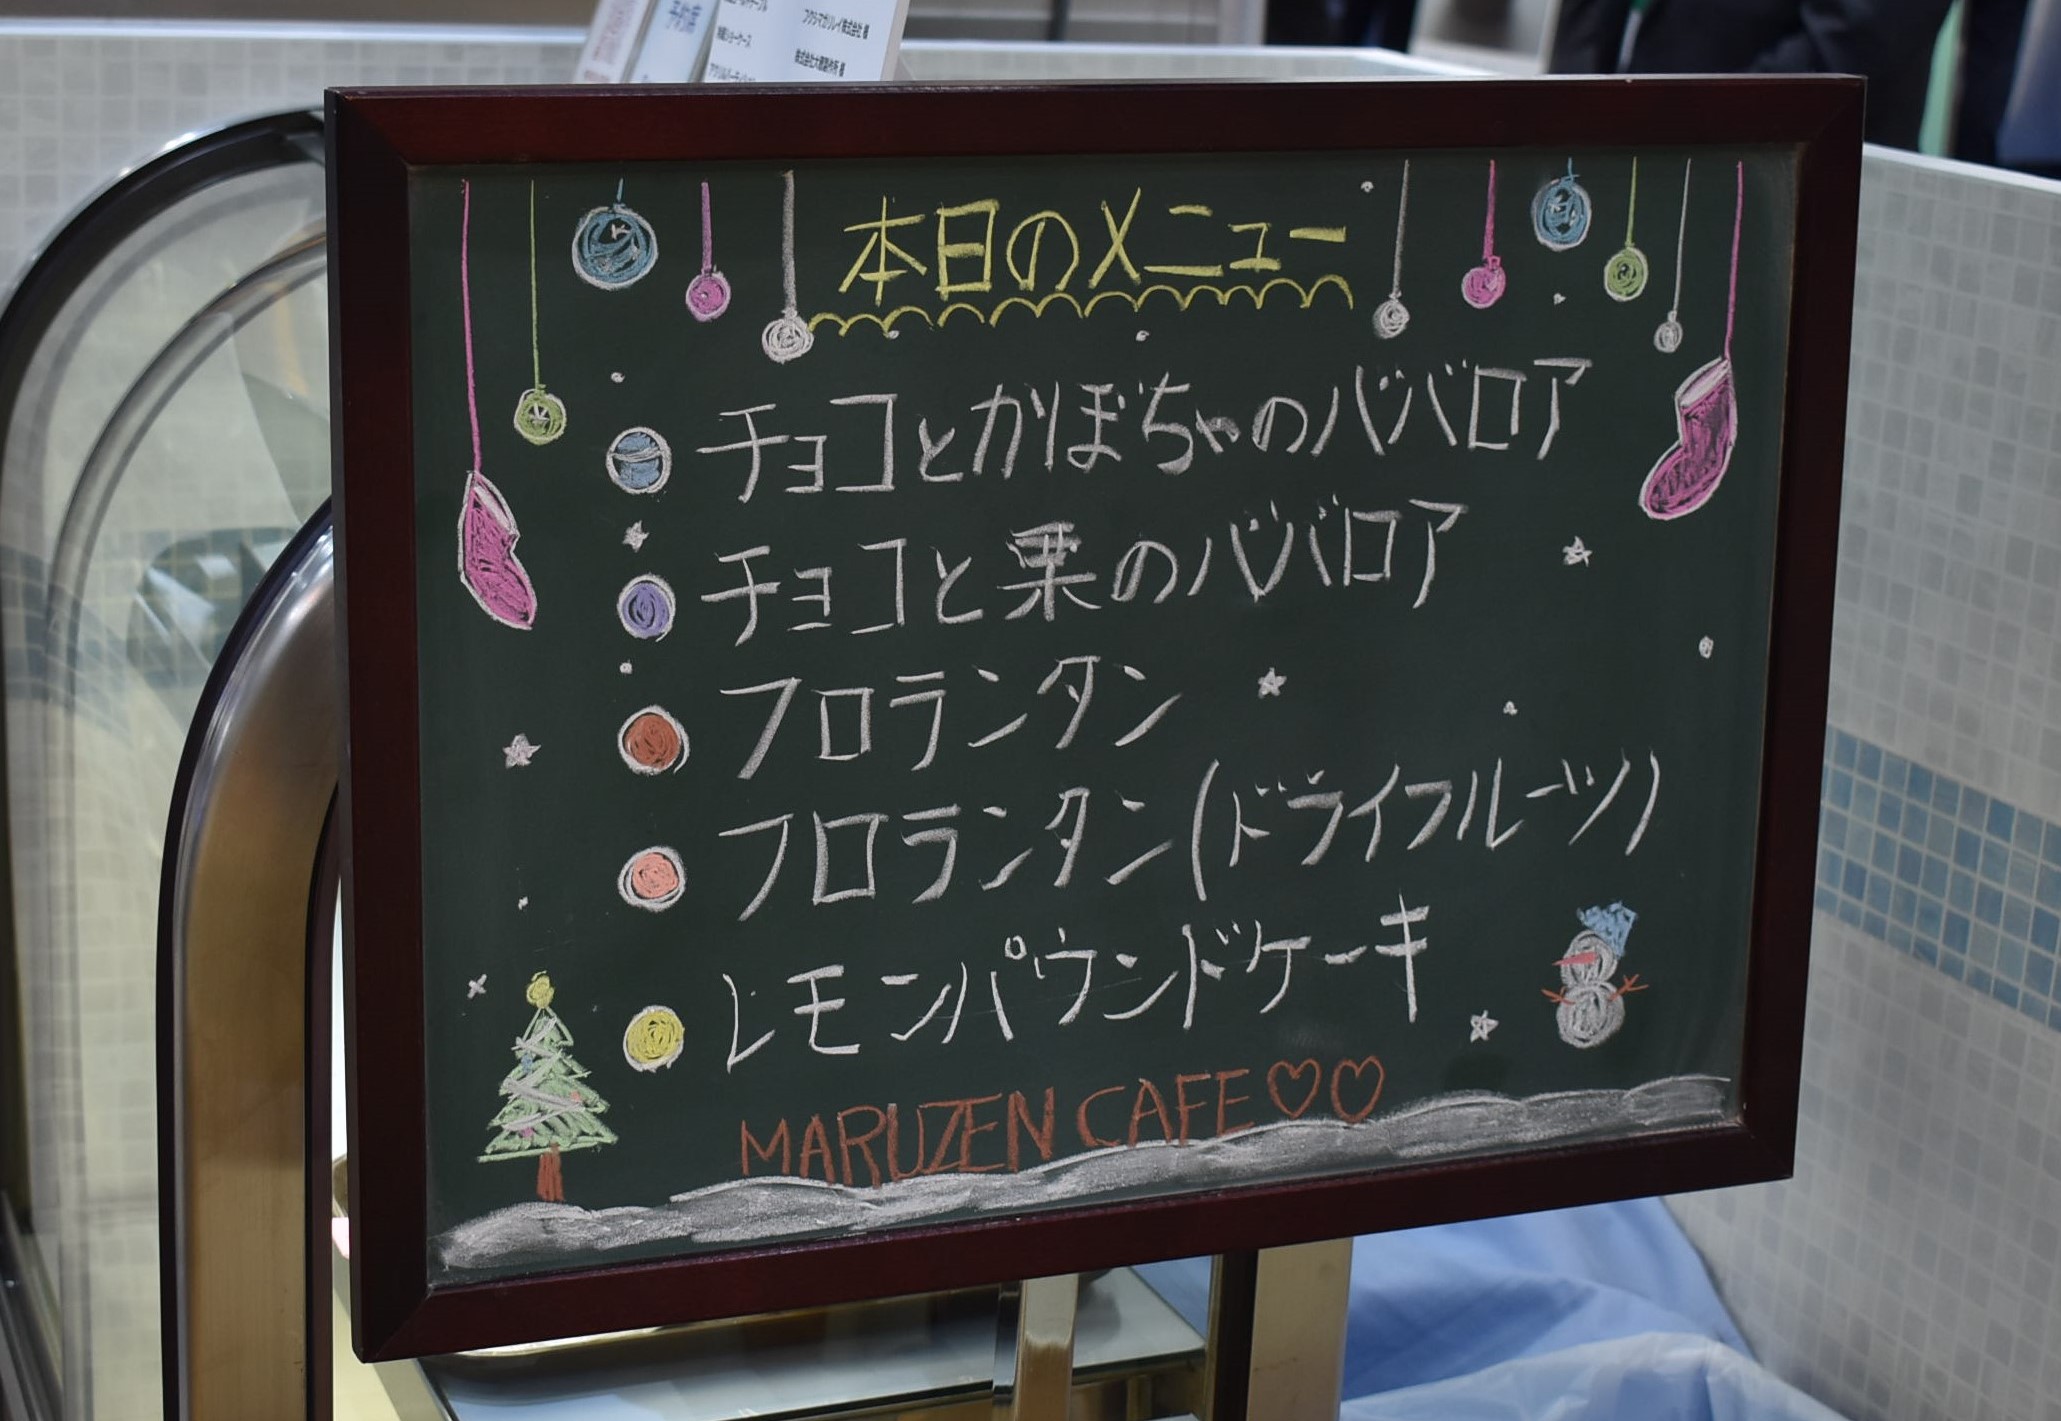 フクシマガリレイ株式会社 様
本日のメニュー
チョコとかぼちゃのババロア
チョコと栗のババロア
フロランタン
フロランタン(ドライフルーツ)
レモンパウンドケーキ
MARUZEN CAFE♡♡